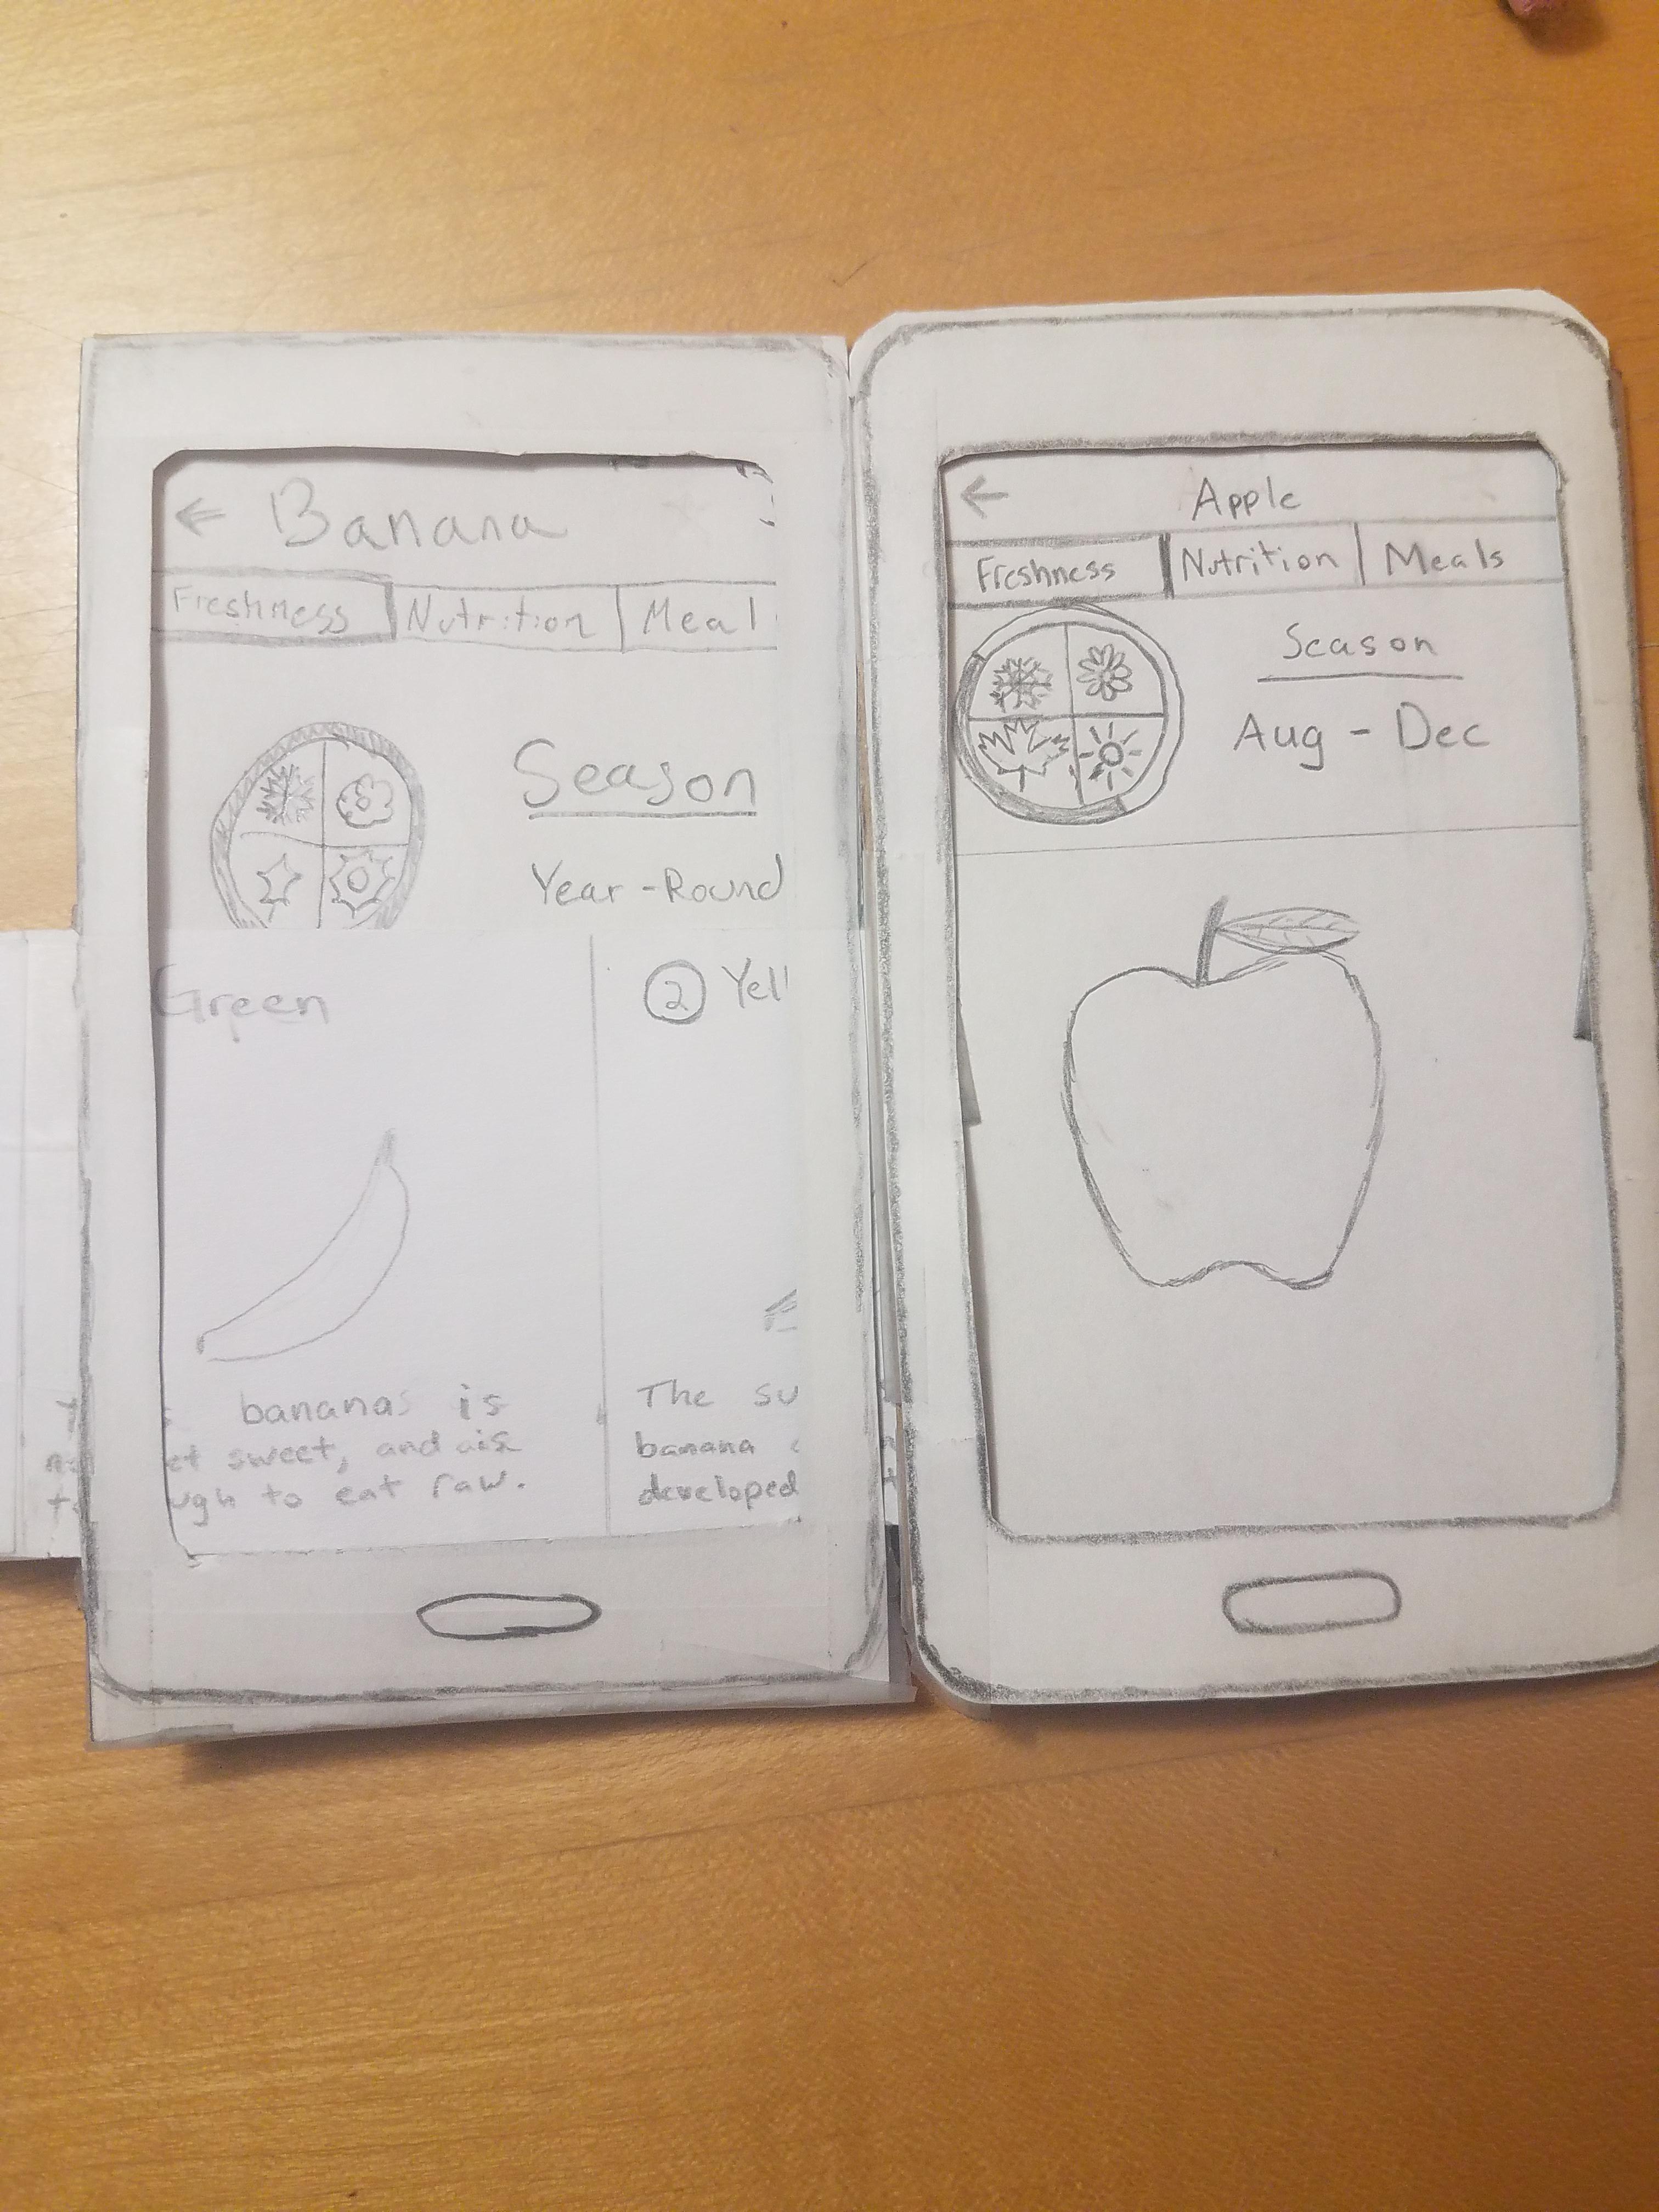 ← Banana
Freshness Nutrition Meal
Season
Year-Round
Green
② Yell
bananas is
et sweet, and
ugh to eat raw.
The su
banana
developed
← Apple
Freshness Nutrition Meals
Season
Aug - Dec